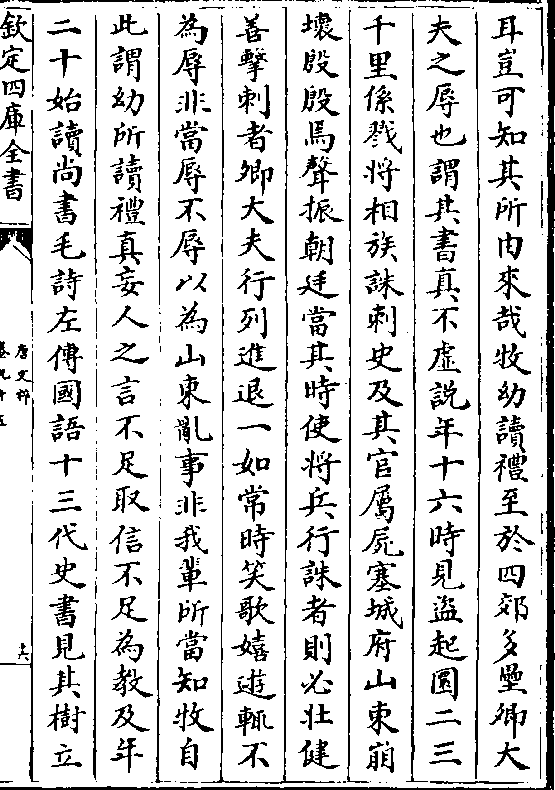 耳豈可知其所由來哉牧幼讀禮至於四郊多壘卿大
夫之辱也謂其書真不虛說年十六時見盜起圜二三
千里係戮將相族誅刺史及其官屬屍塞城府山東崩
壞殷殷焉聲振朝廷當其時使將兵行誅者則必壯健
善擊刺者卿大夫行列進退一如常時笑歌嬉遊輒不
為辱非當辱不辱以為山東亂事非我輩所當知牧自
此謂幼所讀禮真妄人之言不足取信不足為教及年
二十始讀尚書毛詩左傳國語十三代史書見其樹立
欽定四庫全書
唐文粹
卷九十五
十六